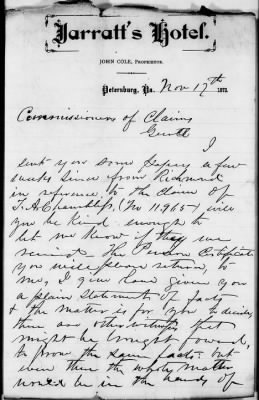 Jarratt's Hotel.
JOHN COLE, PROPRIETOR.
Petersburg, Va. Nov 17th 1873.
Commissioners of Claims
Gentl
I
sent you some papers a few
weeks since from Richmond
in reference to the claim of
T. A. Chandler, (No 11.965) will
you be kind enough to
let me know if they were
received The Pension Certificate
you will please return, to
me, I give have given you
a plain statement of facts
& the matter is for you to decide,
there are other witnesses that
might be brought forward,
to prove the same facts. but
even then the whole matter
would be in the hands of